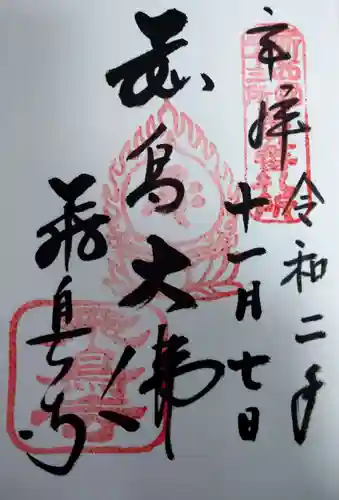 奉拝
令和二年
十一月七日
飛鳥大佛
飛鳥寺